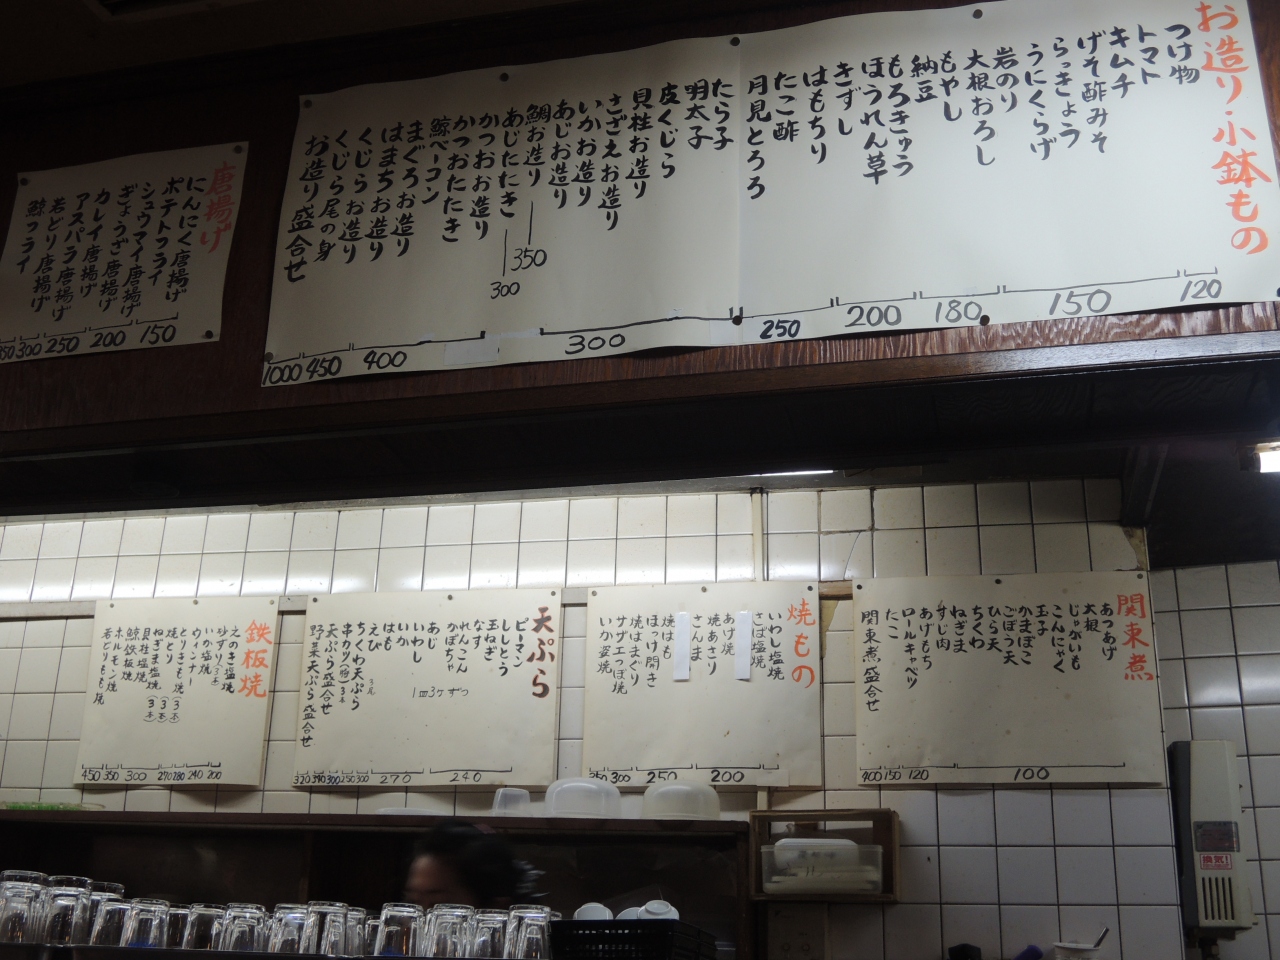 お造り・小鉢もの
つけ物
トマト
キムチ
げそ酢みそ
らっきょう
うにくらげ
岩のり
大根おろし
もやし
納豆
もろきゅう
ほうれん草
きずし
はもちり
たこ酢
月見とろろ
たら子
明太子
皮くじら
貝柱お造り
さざえお造り
いかお造り
あじお造り
鯛お造り
350
あじたたき
300
かつおお造り
かつおたたき
鯨ベーコン
まぐろお造り
はまちお造り
くじらお造り
くじら尾の身
お造り盛合せ
120
150
180
200
250
300
400
450
1000
唐揚げ
にんにく唐揚げ
ポテトフライ
シュウマイ唐揚げ
ぎょうざ唐揚げ
カレイ唐揚げ
アスパラ唐揚げ
若どり唐揚げ
鯨フライ
150
200
250
300
350
関東煮
あつあげ
大根
じゃがいも
こんにゃく
玉子
かまぼこ
ごぼう天
ひら天
ちくわ
ねぎま
すじ肉
あげもち
ロールキャベツ
たこ
関東煮盛合せ
100
120
150
400
焼もの
いわし塩焼
さば塩焼
あげ焼
焼あさり
さんま
焼はも
ほっけ開き
焼はまぐり
サザエつぼ焼
いか姿焼
200
250
300
350
天ぷら
ピーマン
ししとう
玉ねぎ
なす
れんこん
かぼちゃ
あじ
いわし
いか
はも
えび
ちくわ天ぷら
串カツ(特)3本
天ぷら盛合せ
野菜天ぷら盛合せ
1皿3ヶずつ
240
270
300
250
300
320
鉄板焼
えのき塩焼
砂ずり(3本)
いか塩焼
ウィンナー
とりきも焼(3本)
焼とり(3本)
ねぎま塩焼(3本)
貝柱塩焼
鯨鉄板焼
ホルモン焼
若どりもも焼
200
200
240
280
270
300
350
450
換気!